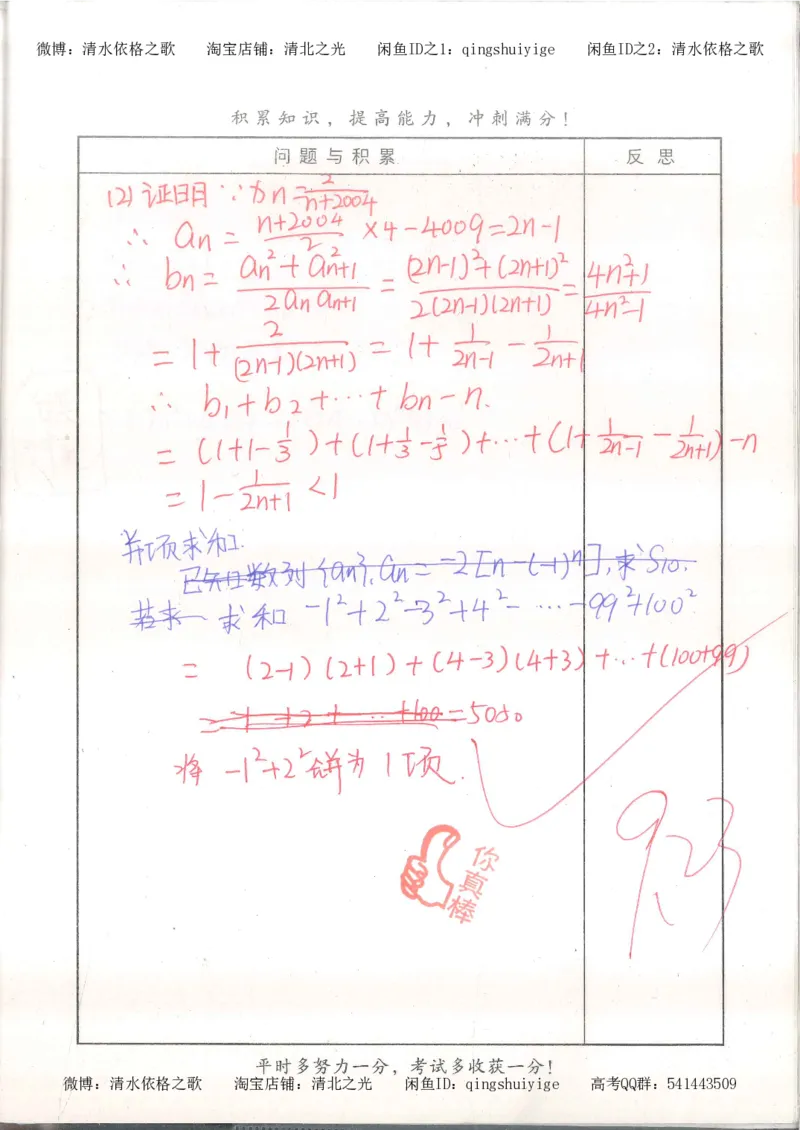 微博：清水依格之歌 淘宝店铺：清北之光 闲鱼ID之1：qingshuiyige 闲鱼ID之2：清水依格之歌
积累知识，提高能力，冲刺满分！
问题与积累 反思
(2) 证明 ∵ xn = 2/(n+2004)
∴ an = (n+2004)/2 ×4-4009=2n-1
∴ bn = (an²+a²n+1)/(2an an+1) = ((2n-1)²+(2n+1)²)/(2(2n-1)(2n+1)) = (4n²+1)/(4n²-1)
= 1+ 2/((2n-1)(2n+1)) = 1+ 1/(2n-1) - 1/(2n+1)
∴ b₁+b₂+…+bn-n.
= (1+1-1/3)+(1+1/3-1/5)+…+(1+1/(2n-1) - 1/(2n+1))-n
= 1- 1/(2n+1) <1
并项求和.
已知数列{an},an = -2[n-(-1)ⁿ],求S10.
求和 -1²+2²-3²+4²-…-99²+100²
= (2-1)(2+1)+(4-3)(4+3)+…+(100+99)
= 1+2+…+100=5050
将 -1²+2² 合并为1项.
你真棒
9.23
平时多努力一分，考试多收获一分！
微博：清水依格之歌 淘宝店铺：清北之光 闲鱼ID：qingshuiyige 高考QQ群：541443509